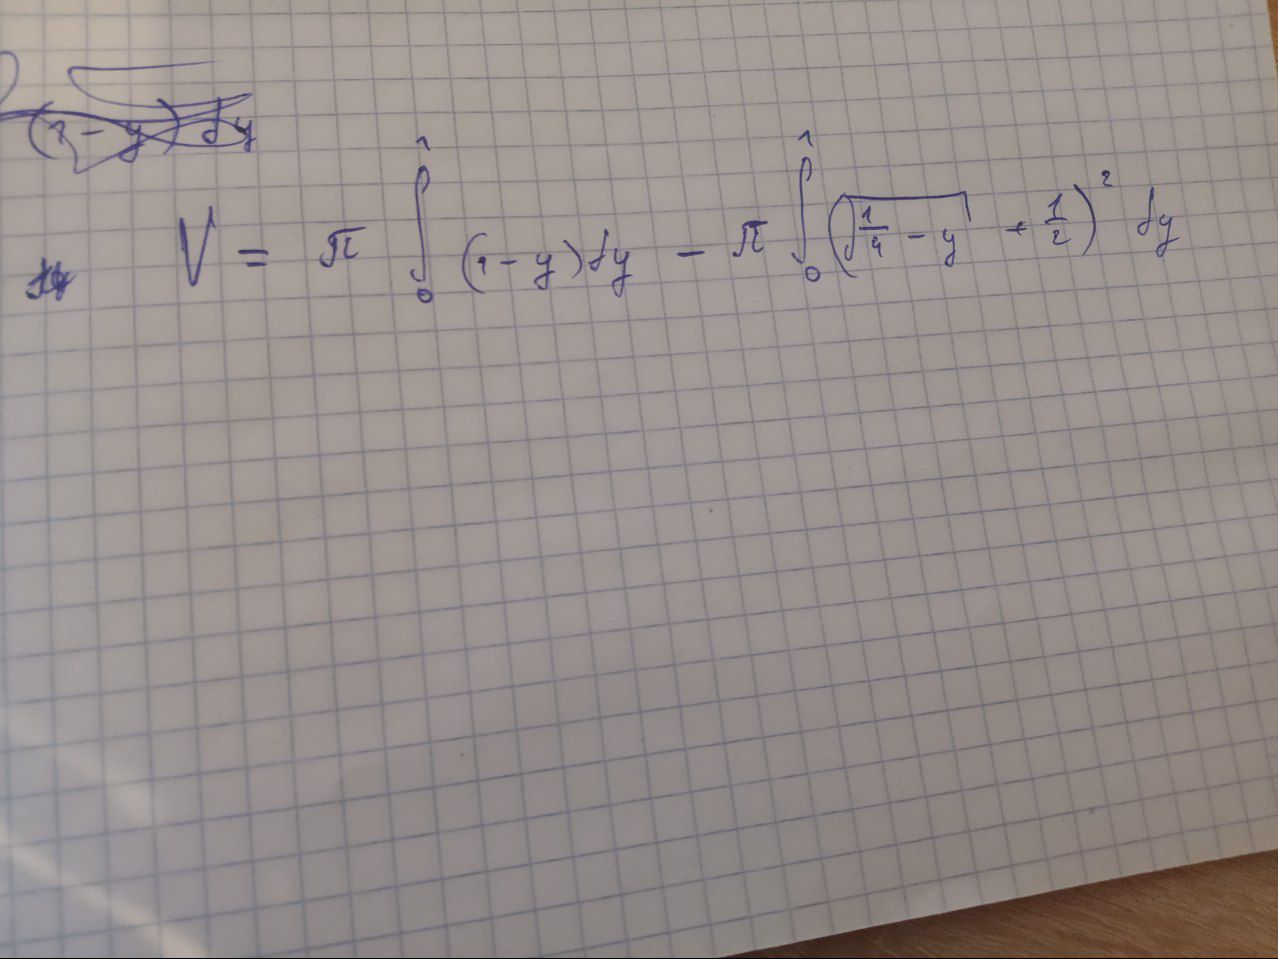 (1-y) dy
V = π ∫₀¹ (1-y)dy - π ∫₀¹ (√(1/4 - y) + 1/2)² dy